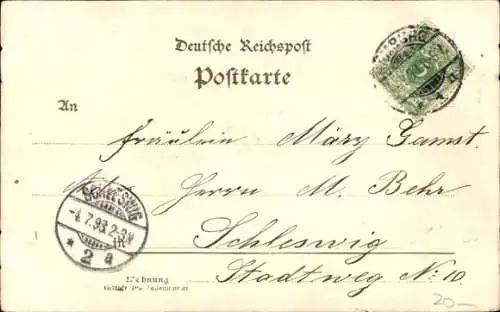 Deutsche Reichspost
Postkarte
An
Fräulein Mary Gamst.
Herrn M. Behr
SCHLESWIG
-4.7.98. 2-3N
* 2 a
Schleswig
Stadtweg No 10.
Wohnung
20-